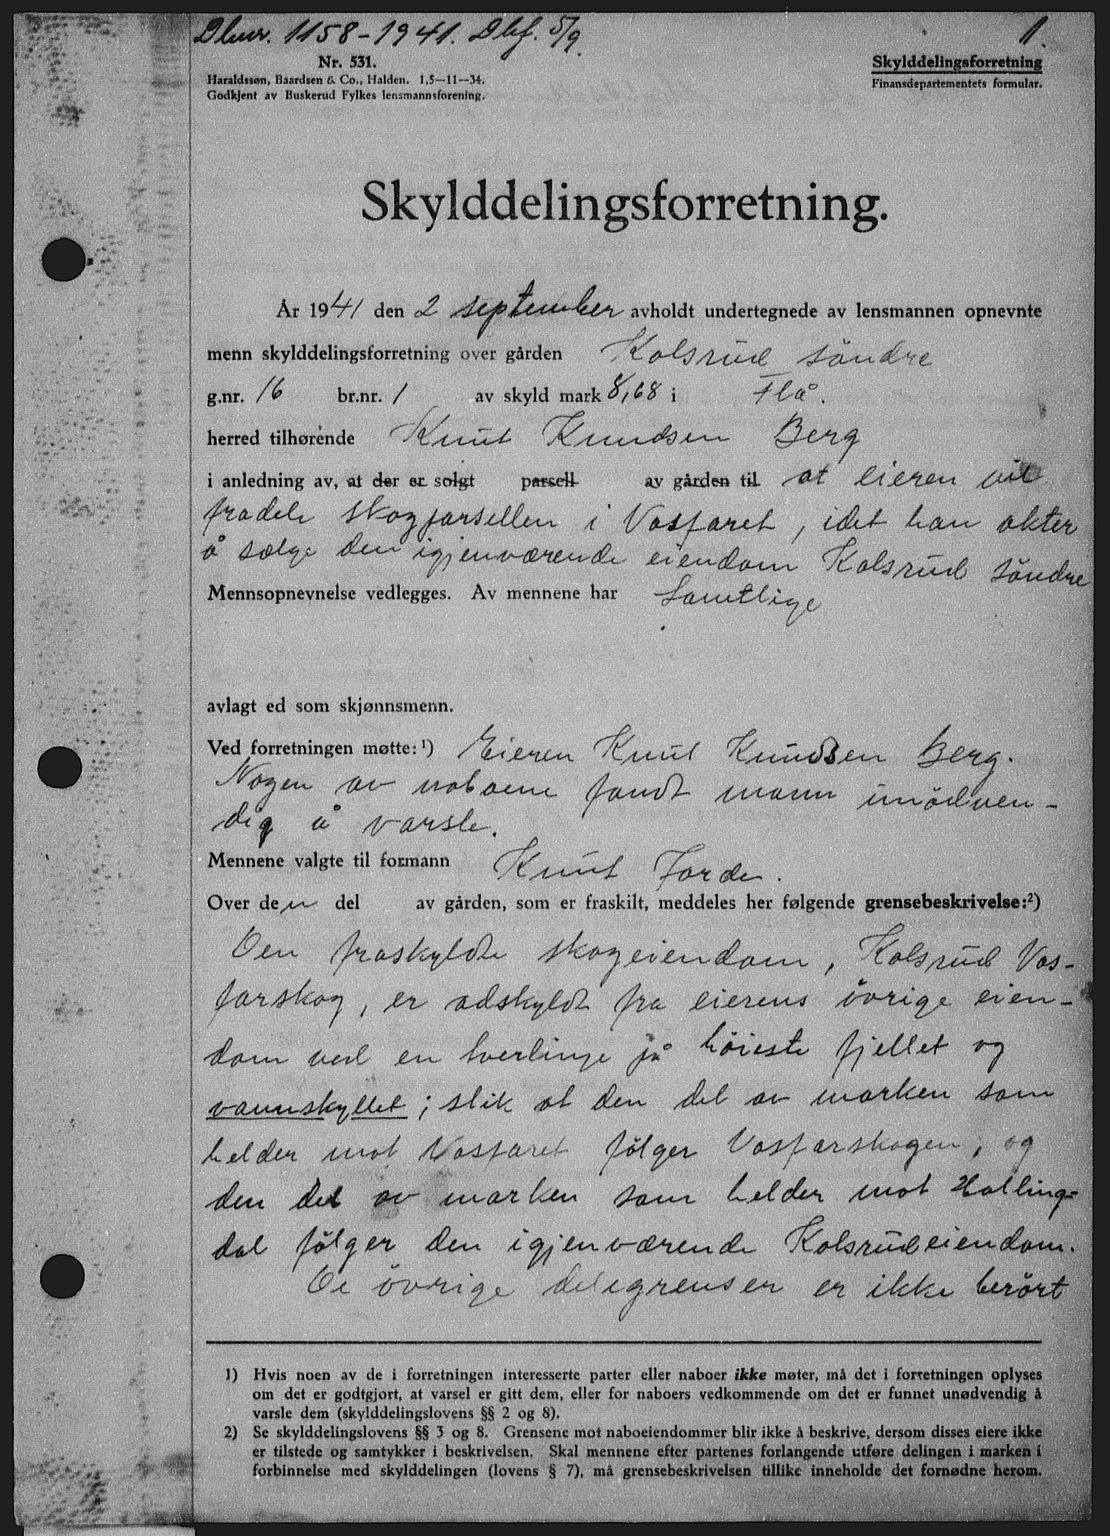 Dbnr. 1158-1941. Dbf. 5/9
1.
Nr. 531.
Haraldssøn, Baardsen & Co., Halden. 1,5—11—34.
Godkjent av Buskerud Fylkes lensmannsforening.
Skylddelingsforretning
Finansdepartementets formular.
Skylddelingsforretning.
År 1941 den 2 september avholdt undertegnede av lensmannen opnevnte
menn skylddelingsforretning over gården Kolsrud söndre
g.nr. 16 br.nr. 1 av skyld mark 8,68 i Flå.
herred tilhørende Knut Knudsen Berg
i anledning av, at der er solgt parsell av gården til at eieren vil
fradele skogparsellen i Vasfaret, idet han akter
å sælge den igjenværende eiendom Kolsrud söndre
Mennsopnevnelse vedlegges. Av mennene har Samtlige
avlagt ed som skjønnsmenn.
Ved forretningen møtte:¹) Eieren Knut Knudsen Berg.
Nogen av naboene fandt mann unödven-
dig å varsle.
Mennene valgte til formann Knut Jorde.
Over den del av gården, som er fraskilt, meddeles her følgende grensebeskrivelse:²)
Den fraskyldte skogeiendom, Kolsrud Vas-
farskog, er adskyldt fra eierens övrige eien-
dom ved en tverlinje på höieste fjellet og
vannskyllet; slik at den del av marken som
helder mot Vasfaret fölger Vasfarskogen, og
den del av marken som helder mot Halling-
dal fölger den igjenværende Kolsrudeiendom.
De övrige delegrenser er ikke berört
1) Hvis noen av de i forretningen interesserte parter eller naboer ikke møter, må det i forretningen oplyses
om det er godtgjort, at varsel er gitt dem, eller for naboers vedkommende om det er funnet unødvendig å
varsle dem (skylddelingslovens §§ 2 og 8).
2) Se skylddelingslovens §§ 3 og 8. Grensene mot naboeiendommer blir ikke å beskrive, dersom disses eiere ikke
er tilstede og samtykker i beskrivelsen. Skal mennene efter partenes forlangende utføre delingen i marken i
forbinnelse med skylddelingen (lovens § 7), må grensebeskrivelsen tillike inneholde det fornødne herom.